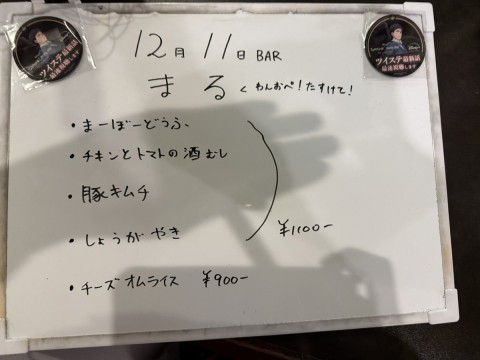 12月11日 BAR
まる < わんおぺ!たすけて!
・まーぼーどうふ
・チキンとトマトの酒むし
・豚キムチ
・しょうがやき
¥1100-
・チーズオムライス ¥900-
ツイステ最新話
最速視聴します
ツイステ最新話
最速視聴します